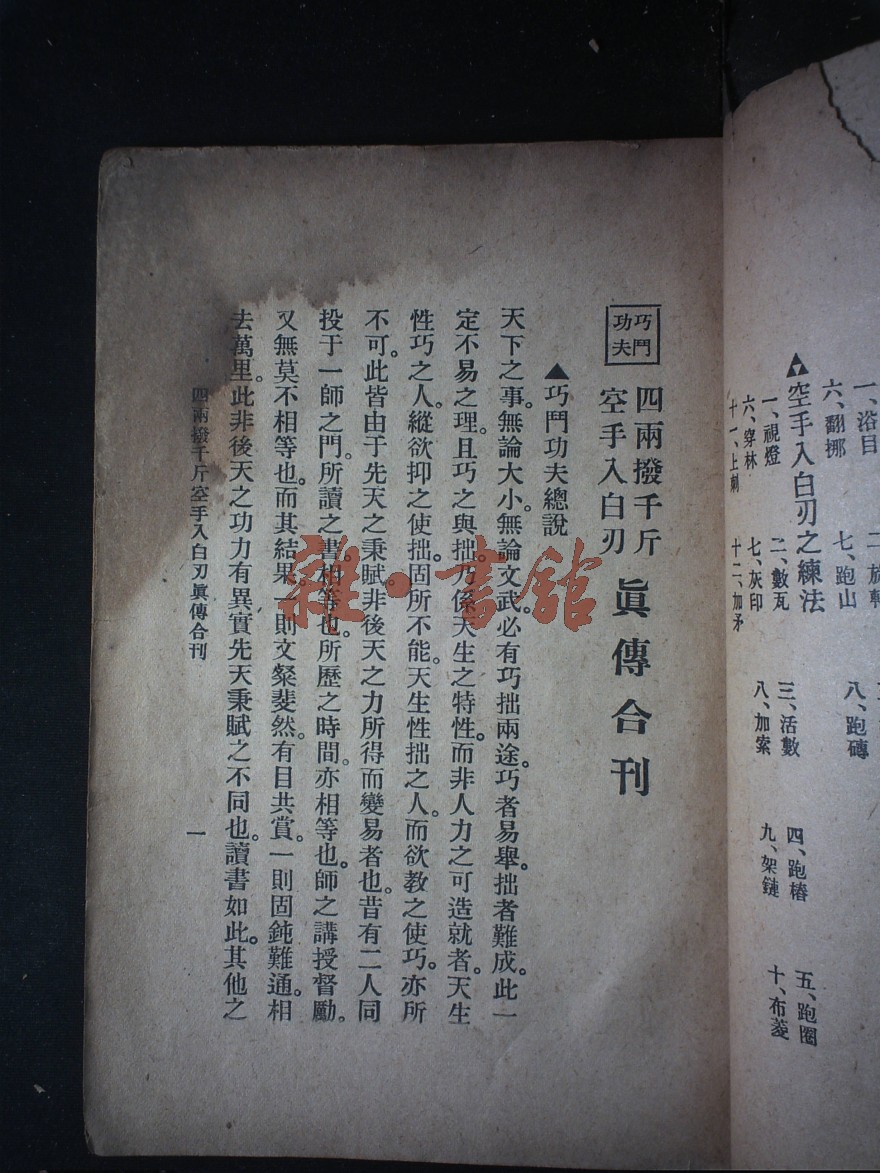 一、浴目
六、翻挪　七、跑山　八、跑磚
空手入白刃之練法
一、視燈　二、數瓦　三、活數　四、跑樁　五、跑圈
六、穿林　七、灰印　八、加索　九、架鏈　十、布菱
十一、上刺　十二、加矛
巧門功夫
四兩撥千斤
空手入白刃
眞傳合刊
▲巧門功夫總說
天下之事。無論大小。無論文武。必有巧拙兩途。巧者易舉。拙者難成。此一
定不易之理。且巧之與拙。乃係天生之特性。而非人力之可造就者。天生
性巧之人。縱欲抑之使拙。固所不能。天生性拙之人。而欲教之使巧。亦所
不可。此皆由于先天之秉賦。非後天之力所得而變易者也。昔有二人同
投于一師之門。所讀之書。相等也。所歷之時間。亦相等也。師之講授督勵。
又無莫不相等也。而其結果。一則文燊斐然。有目共賞。一則固鈍難通。相
去萬里。此非後天之功力有異。實先天秉賦之不同也。讀書如此。其他之
四兩撥千斤空手入白刃眞傳合刊
一
雜·書館